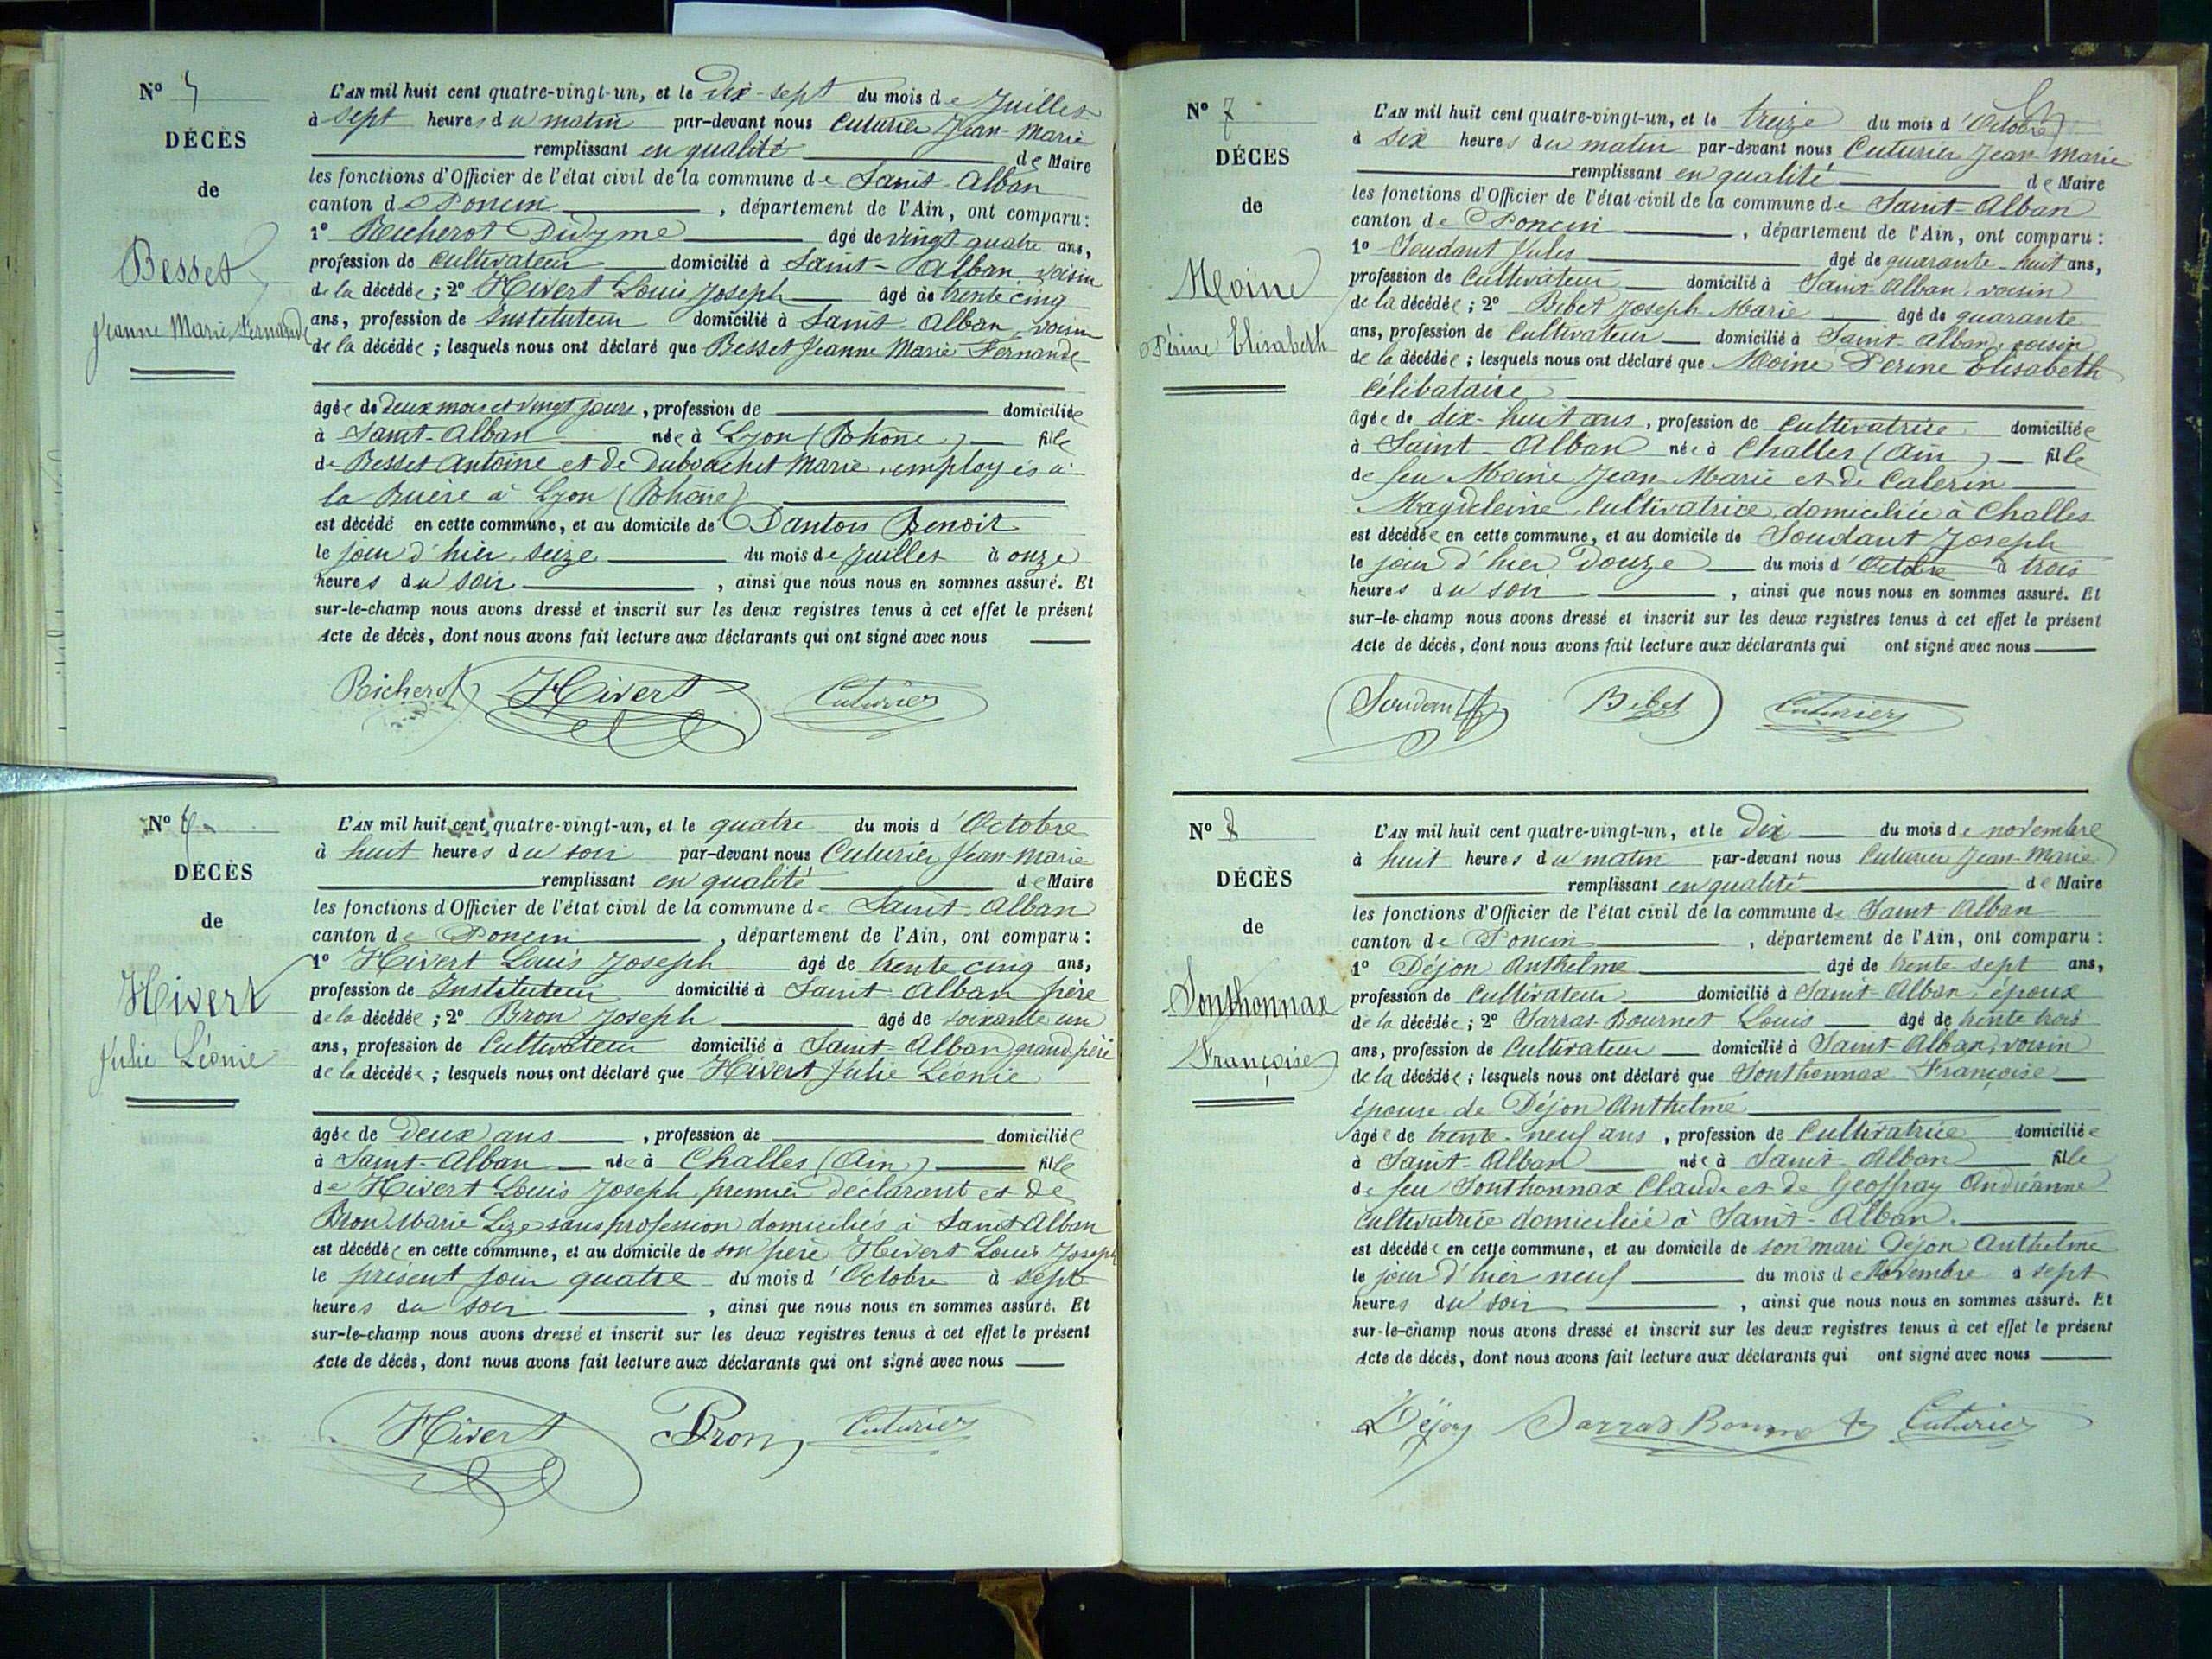 N° 5
DÉCÈS
de
Besset
Jeanne Marie Fernande
L'AN mil huit cent quatre-vingt-un, et le Dix-sept du mois de Juillet
à sept heures du matin par-devant nous Cuturier Jean-Marie
remplissant en qualité de Maire
les fonctions d'Officier de l'état civil de la commune de Saint-Alban
canton de Poncin, département de l'Ain, ont comparu:
1° Richerot Didyme âgé de vingt quatre ans,
profession de cultivateur domicilié à Saint-Alban voisin
de la décédée; 2° Hivert Louis Joseph âgé de trente cinq
ans, profession de Instituteur domicilié à Saint-Alban, voisin
de la décédée; lesquels nous ont déclaré que Besset Jeanne Marie Fernande
âgée de Deux mois et vingt jours, profession de domiciliée
à Saint-Alban née à Lyon (Rhône) fille
de Besset Antoine et de Dubrachet Marie, employés à
la Buire à Lyon (Rhône)
est décédé en cette commune, et au domicile de Dantois Benoit
le jour d'hier, seize du mois de Juillet à onze
heures du soir, ainsi que nous nous en sommes assuré. Et
sur-le-champ nous avons dressé et inscrit sur les deux registres tenus à cet effet le présent
Acte de décès, dont nous avons fait lecture aux déclarants qui ont signé avec nous
Richerot Hivert Cuturier
N° 6
DÉCÈS
de
Hivert
Julie Léonie
L'AN mil huit cent quatre-vingt-un, et le quatre du mois d'Octobre
à huit heures du soir par-devant nous Cuturier Jean-Marie
remplissant en qualité de Maire
les fonctions d'Officier de l'état civil de la commune de Saint-Alban
canton de Poncin, département de l'Ain, ont comparu:
1° Hivert Louis Joseph âgé de trente cinq ans,
profession de Instituteur domicilié à Saint-Alban père
de la décédée; 2° Bron Joseph âgé de soixante un
ans, profession de Cultivateur domicilié à Saint-Alban, grand père
de la décédée; lesquels nous ont déclaré que Hivert Julie Léonie
âgée de Deux ans, profession de domiciliée
à Saint-Alban née à Challes (Ain) fille
de Hivert Louis Joseph, premier déclarant et de
Bron Marie Lize sans profession domiciliés à Saint Alban
est décédée en cette commune, et au domicile de son père Hivert Louis Joseph
le présent jour quatre du mois d'Octobre à sept
heures du soir, ainsi que nous nous en sommes assuré. Et
sur-le-champ nous avons dressé et inscrit sur les deux registres tenus à cet effet le présent
Acte de décès, dont nous avons fait lecture aux déclarants qui ont signé avec nous
Hivert Bron Cuturier
N° 7
DÉCÈS
de
Moine
Périne Elisabeth
L'AN mil huit cent quatre-vingt-un, et le treize du mois d'Octobre
à six heures du matin par-devant nous Cuturier Jean-Marie
remplissant en qualité de Maire
les fonctions d'Officier de l'état civil de la commune de Saint-Alban
canton de Poncin, département de l'Ain, ont comparu:
1° Soudant Jules âgé de quarante-huit ans,
profession de Cultivateur domicilié à Saint Alban, voisin
de la décédée; 2° Bibet Joseph Marie âgé de quarante
ans, profession de Cultivateur domicilié à Saint-Alban, voisin
de la décédée; lesquels nous ont déclaré que Moine Perine Elisabeth
célibataire
âgée de dix-huit ans, profession de Cultivatrice domiciliée
à Saint-Alban née à Challes (Ain) fille
de feu Moine Jean-Marie et de Calerin
Magdeleine, Cultivatrice, domiciliée à Challes
est décédée en cette commune, et au domicile de Soudant Joseph
le jour d'hier Douze du mois d'Octobre à trois
heures du soir, ainsi que nous nous en sommes assuré. Et
sur-le-champ nous avons dressé et inscrit sur les deux registres tenus à cet effet le présent
Acte de décès, dont nous avons fait lecture aux déclarants qui ont signé avec nous
Soudant Bibet Cuturier
N° 8
DÉCÈS
de
Sonthonnax
Françoise
L'AN mil huit cent quatre-vingt-un, et le Dix du mois de novembre
à huit heures du matin par-devant nous Cuturier Jean-Marie
remplissant en qualité de Maire
les fonctions d'Officier de l'état civil de la commune de Saint-Alban
canton de Poncin, département de l'Ain, ont comparu:
1° Déjon Anthelme âgé de trente-sept ans,
profession de Cultivateur domicilié à Saint-Alban, époux
de la décédée; 2° Sarras-Bournet Louis âgé de trente trois
ans, profession de Cultivateur domicilié à Saint-Alban, voisin
de la décédée; lesquels nous ont déclaré que Sonthonnax Françoise
épouse de Déjon Anthelme
âgée de trente-neuf ans, profession de Cultivatrice domiciliée
à Saint-Alban née à Saint-Alban fille
de feu Sonthonnax Claude et de Geoffray Andréanne
cultivatrice domiciliée à Saint-Alban.
est décédée en cette commune, et au domicile de son mari Déjon Anthelme
le jour d'hier neuf du mois de Novembre à sept
heures du soir, ainsi que nous nous en sommes assuré. Et
sur-le-champ nous avons dressé et inscrit sur les deux registres tenus à cet effet le présent
Acte de décès, dont nous avons fait lecture aux déclarants qui ont signé avec nous
Déjon Sarras Bournet Cuturier